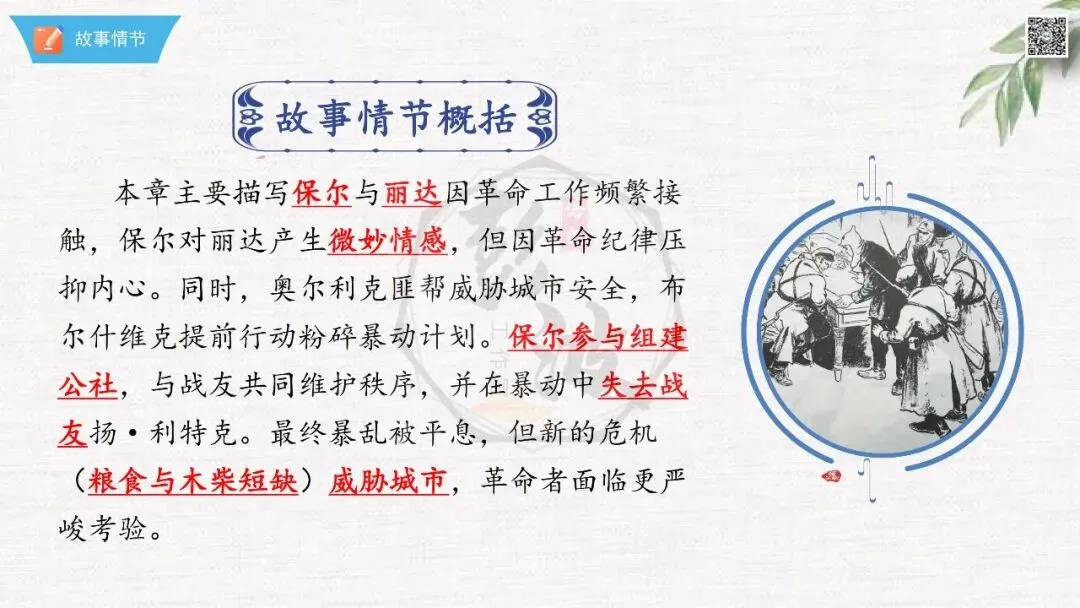 故事情节
故事情节概括
本章主要描写保尔与丽达因革命工作频繁接
触，保尔对丽达产生微妙情感，但因革命纪律压
抑内心。同时，奥尔利克匪帮威胁城市安全，布
尔什维克提前行动粉碎暴动计划。保尔参与组建
公社，与战友共同维护秩序，并在暴动中失去战
友扬·利特克。最终暴乱被平息，但新的危机
（粮食与木柴短缺）威胁城市，革命者面临更严
峻考验。